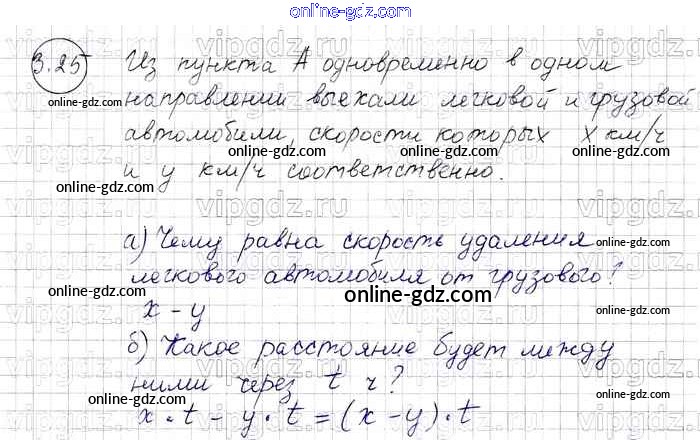 online-gdz.com
3.25 Из пункта А одновременно в одном
направлении выехали легковой и грузовой
автомобили, скорости которых x км/ч
и y км/ч соответственно.
а) Чему равна скорость удаления
легкового автомобиля от грузового?
x - y
б) Какое расстояние будет между
ними через t ч?
x · t - y · t = (x - y) · t
online-gdz.com
online-gdz.com
online-gdz.com
online-gdz.com
online-gdz.com
online-gdz.com
online-gdz.com
online-gdz.com
online-gdz.com
online-gdz.com
online-gdz.com